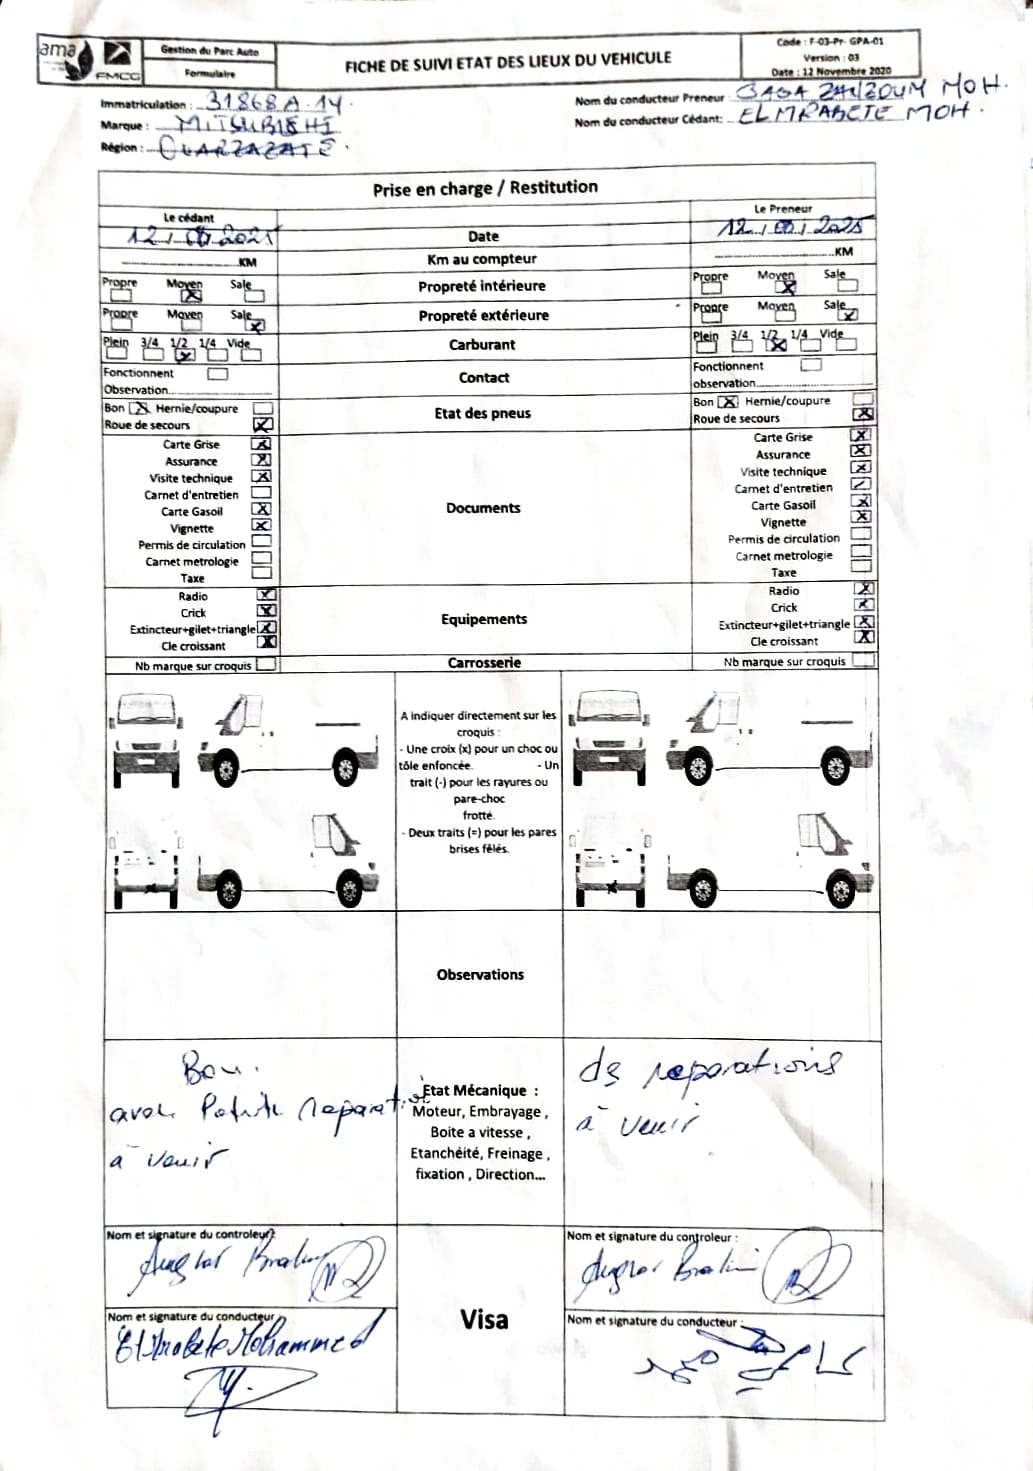 ama
FMCG
Gestion du Parc Auto
Formulaire
FICHE DE SUIVI ETAT DES LIEUX DU VEHICULE
Code : F-03-Pr- GPA-01
Version : 03
Date : 12 Novembre 2020
Immatriculation : 31868 A.14.
Nom du conducteur Preneur : MOH.
Marque : MITSUBISHI
Nom du conducteur Cédant: ELMRABETE MOH.
Région : OUARZAZATE.
Prise en charge / Restitution
Le cédant Le Preneur
12 / / 2025 Date 12 / / 2025
KM Km au compteur KM
Propre Moyen Sale Propreté intérieure Propre Moyen Sale
Propre Moyen Sale Propreté extérieure Propre Moyen Sale
Plein 3/4 1/2 1/4 Vide Carburant Plein 3/4 1/2 1/4 Vide
Fonctionnent Contact Fonctionnent
Observation observation
Bon Hernie/coupure Etat des pneus Bon Hernie/coupure
Roue de secours Roue de secours
Carte Grise Carte Grise
Assurance Assurance
Visite technique Visite technique
Carnet d'entretien Carnet d'entretien
Carte Gasoil Documents Carte Gasoil
Vignette Vignette
Permis de circulation Permis de circulation
Carnet metrologie Carnet metrologie
Taxe Taxe
Radio Radio
Crick Crick
Extincteur+gilet+triangle Equipements Extincteur+gilet+triangle
Cle croissant Cle croissant
Nb marque sur croquis Carrosserie Nb marque sur croquis
A indiquer directement sur les
croquis :
- Une croix (x) pour un choc ou
tôle enfoncée. - Un
trait (-) pour les rayures ou
pare-choc
frotté.
- Deux traits (=) pour les pares
brises fêlés.
Observations
Bon.
avec reparation
à venir
Etat Mécanique :
Moteur, Embrayage ,
Boite a vitesse ,
Etanchéité, Freinage ,
fixation , Direction...
des reparations
à venir
Nom et signature du controleur: Nom et signature du controleur :
Visa
Nom et signature du conducteur Nom et signature du conducteur :
Elmrabete Mohammed